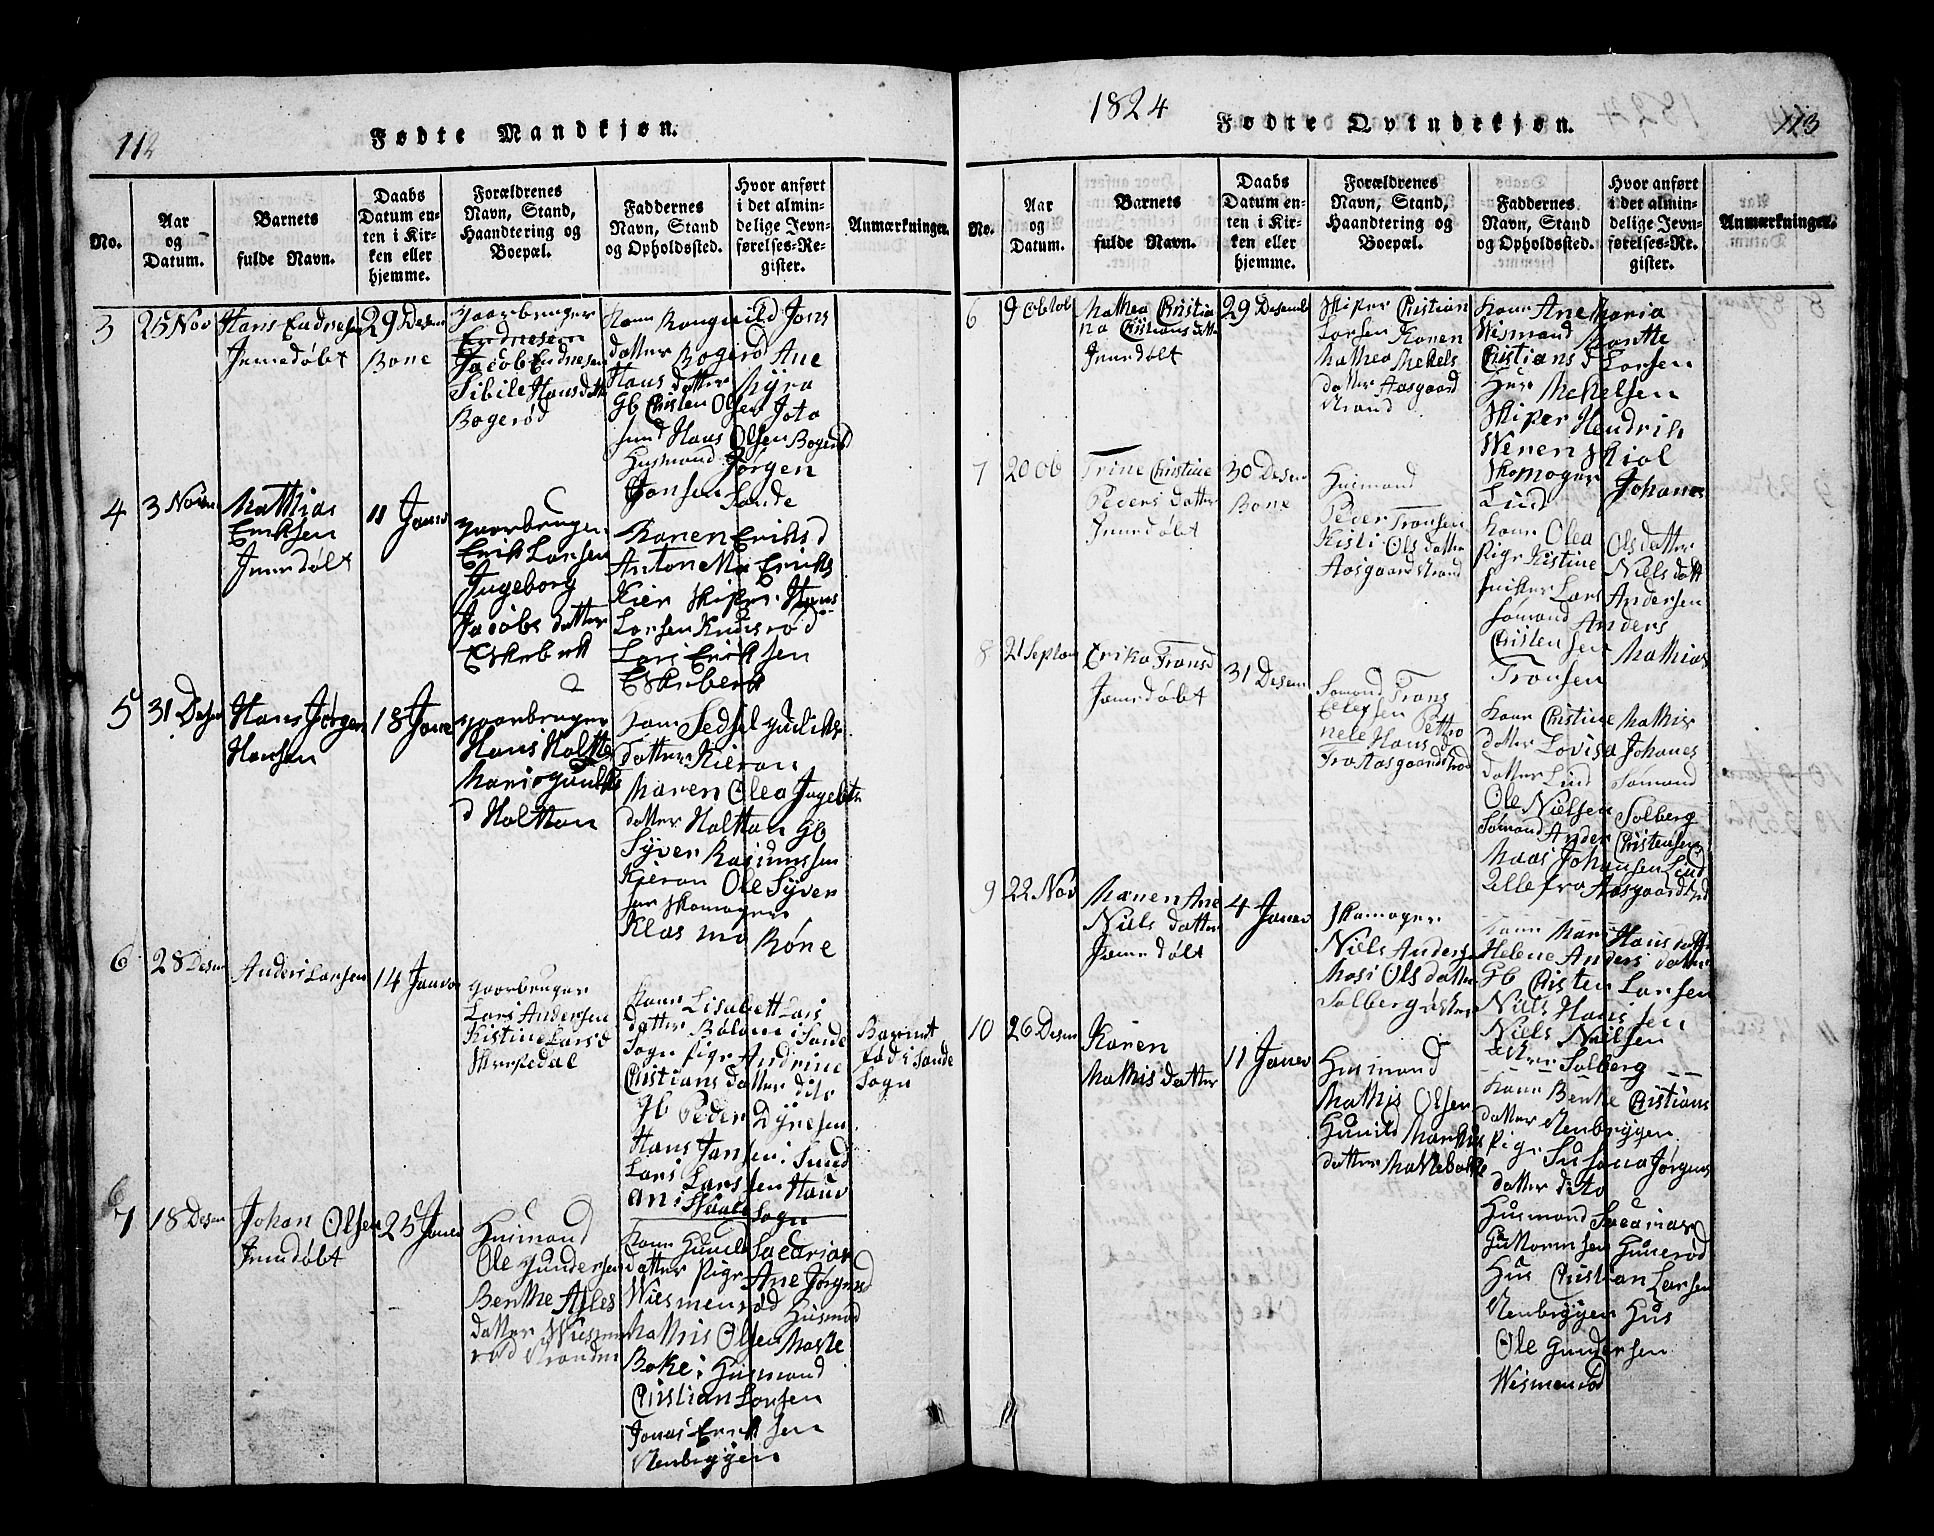 112
Fødte Mandkjøn.
No.
Aar
og
Datum.
Barnets
fulde Navn.
Daabs
Datum en-
ten i Kir-
ken eller
hjemme.
Forældrenes
Navn, Stand,
Haandtering og
Boepæl.
Faddernes
Navn, Stand
og Opholdssted.
Hvor anført
i det almin-
delige Jevn-
førelses-Re-
gister.
Anmærkninger.
3
25 Nov
Hans Endresen
Jemedøbt
29 Desem
Bone
gaarbruger
Endresen
Jacob Endresen
Sibile Hansdatt
Bogerød
Kone Rongnild Jons
datter Bogerød Ane
Hans datter Myra
Gb Christen Olsen
Hans Olsen Bogerød
Husmand Jørgen
Jonsen Sande
4
3 Novem
Matthias
Eriksen
Jemedøbt
11 Janu
gaarbruger
Erik Larsen
Ingeborg
Jacobs datter
Eskebek
Karen Eriks d
Anton Ma Eriks
Kier Skiper Hans
Larsen Knusrød
Lars Eriksen
Eskebek
5
31 Desem
Hans Jørgen
Hansen
18 Janu
gaarbruger
Hans Holtte
Mari
d Holttan
Kone Sedsel
datter Kieran
Maren Olea
datter Holttan Gb
Syver Rasmussen
Kieran Ole Syver
sen Skomager
Klas mo Røne
6
28 Desem
Anders Larsen
14 Januar
gaarbruger
Lars Andersen
Kistine Lars d
Skersedal
Kone Lisabett Lars
datter Bolane i Sande
Sogn pige Andrine
Christians datter dito
Gb Peder Dyresen
Hans Jansen i Sund
Lars Larssen Hauv
an i Skoule Sogn
Barnet
fød i Sande
Sogn
7
18 Desem
Johan Olsen
Jemedøbt
25 Janu
Husmand
Ole Gundersen
Benthe Asles
datter Wismen
rød Stranden
Kone Gunild Sacarias
datter Pige Ane Jørgens d
Wiesmenrød Husmand
Mathis Olsen Maske
Boke i Husmand
Christian Larsen
Jonas Eriksen
Nenbryggen
1824
Fødte Qvindekjøn.
113
No.
Aar
og
Datum.
Barnets
fulde Navn.
Daabs
Datum en-
ten i Kir-
ken eller
hjemme.
Forældrenes
Navn, Stand,
Haandtering og
Boepæl.
Faddernes
Navn, Stand
og Opholdssted.
Hvor anført
i det almin-
delige Jevn-
førelses-Re-
gister.
Anmærkninger.
6
9 Obtob
Mathea Christia
na Christians datte
Jemedøbt
29 Desemb
Skiper Christian
Larsen Karen
Mathea Mekels
datter Aasgaard
strand
Kone Ane Maria
Wismand Bentte
Christians d Larsen
Hus Mekelsen
Skiper Hendrik
Weren Skiol
Skomager Johanes
Lind
7
20 Ob
Trine Christine
Peders datter
Jemedøbt
30 Desem
Bone
Husmand
Peder Transen
Kisti Ols datter
Aasgaardstrand
Kone Olea Olsdatter
Pige Kistine Niels datt
Lars Andersen
Sømand Anders
Christensen Mathias
Transen
8
21 Septem
Erika Trans d
Jemedøbt
31 Desem
Sømand Trans
Pettro
nele Hans d
Fra Aasgaardstrand
Kone Christine Mathis
datter Lovisa Johanes
datter Lind Sømand
Ole Nielsen Solberg
Sømand Anders Christensen
Maas Johansen Lind
alle fra Aasgaardstrand
9
22 Nov
Maren Ane
Niels datter
Jemedøbt
4 Januv
Skomager
Niels Andersen
Mari Ols datter
Solberg østre
Kone Mari Hans datter
Helene Anders datter
Gb Christen Larsen
Niels Hansen
Niels Nielsen
Solberg
10
26 Desem
Karen
Mathis datter
11 Januv
Husmand
Mathis Olsen
Gunild Markus
datter Maskebokke
Kone Benthe Christians
datter Nenbryggen
Pige Susana Jørgens
datter dito
Husmand Sacarias
Guttormsen Gunerød
Hus Christian Larsen
Nenbryggen Hus
Ole Gundersen
Wismenrød